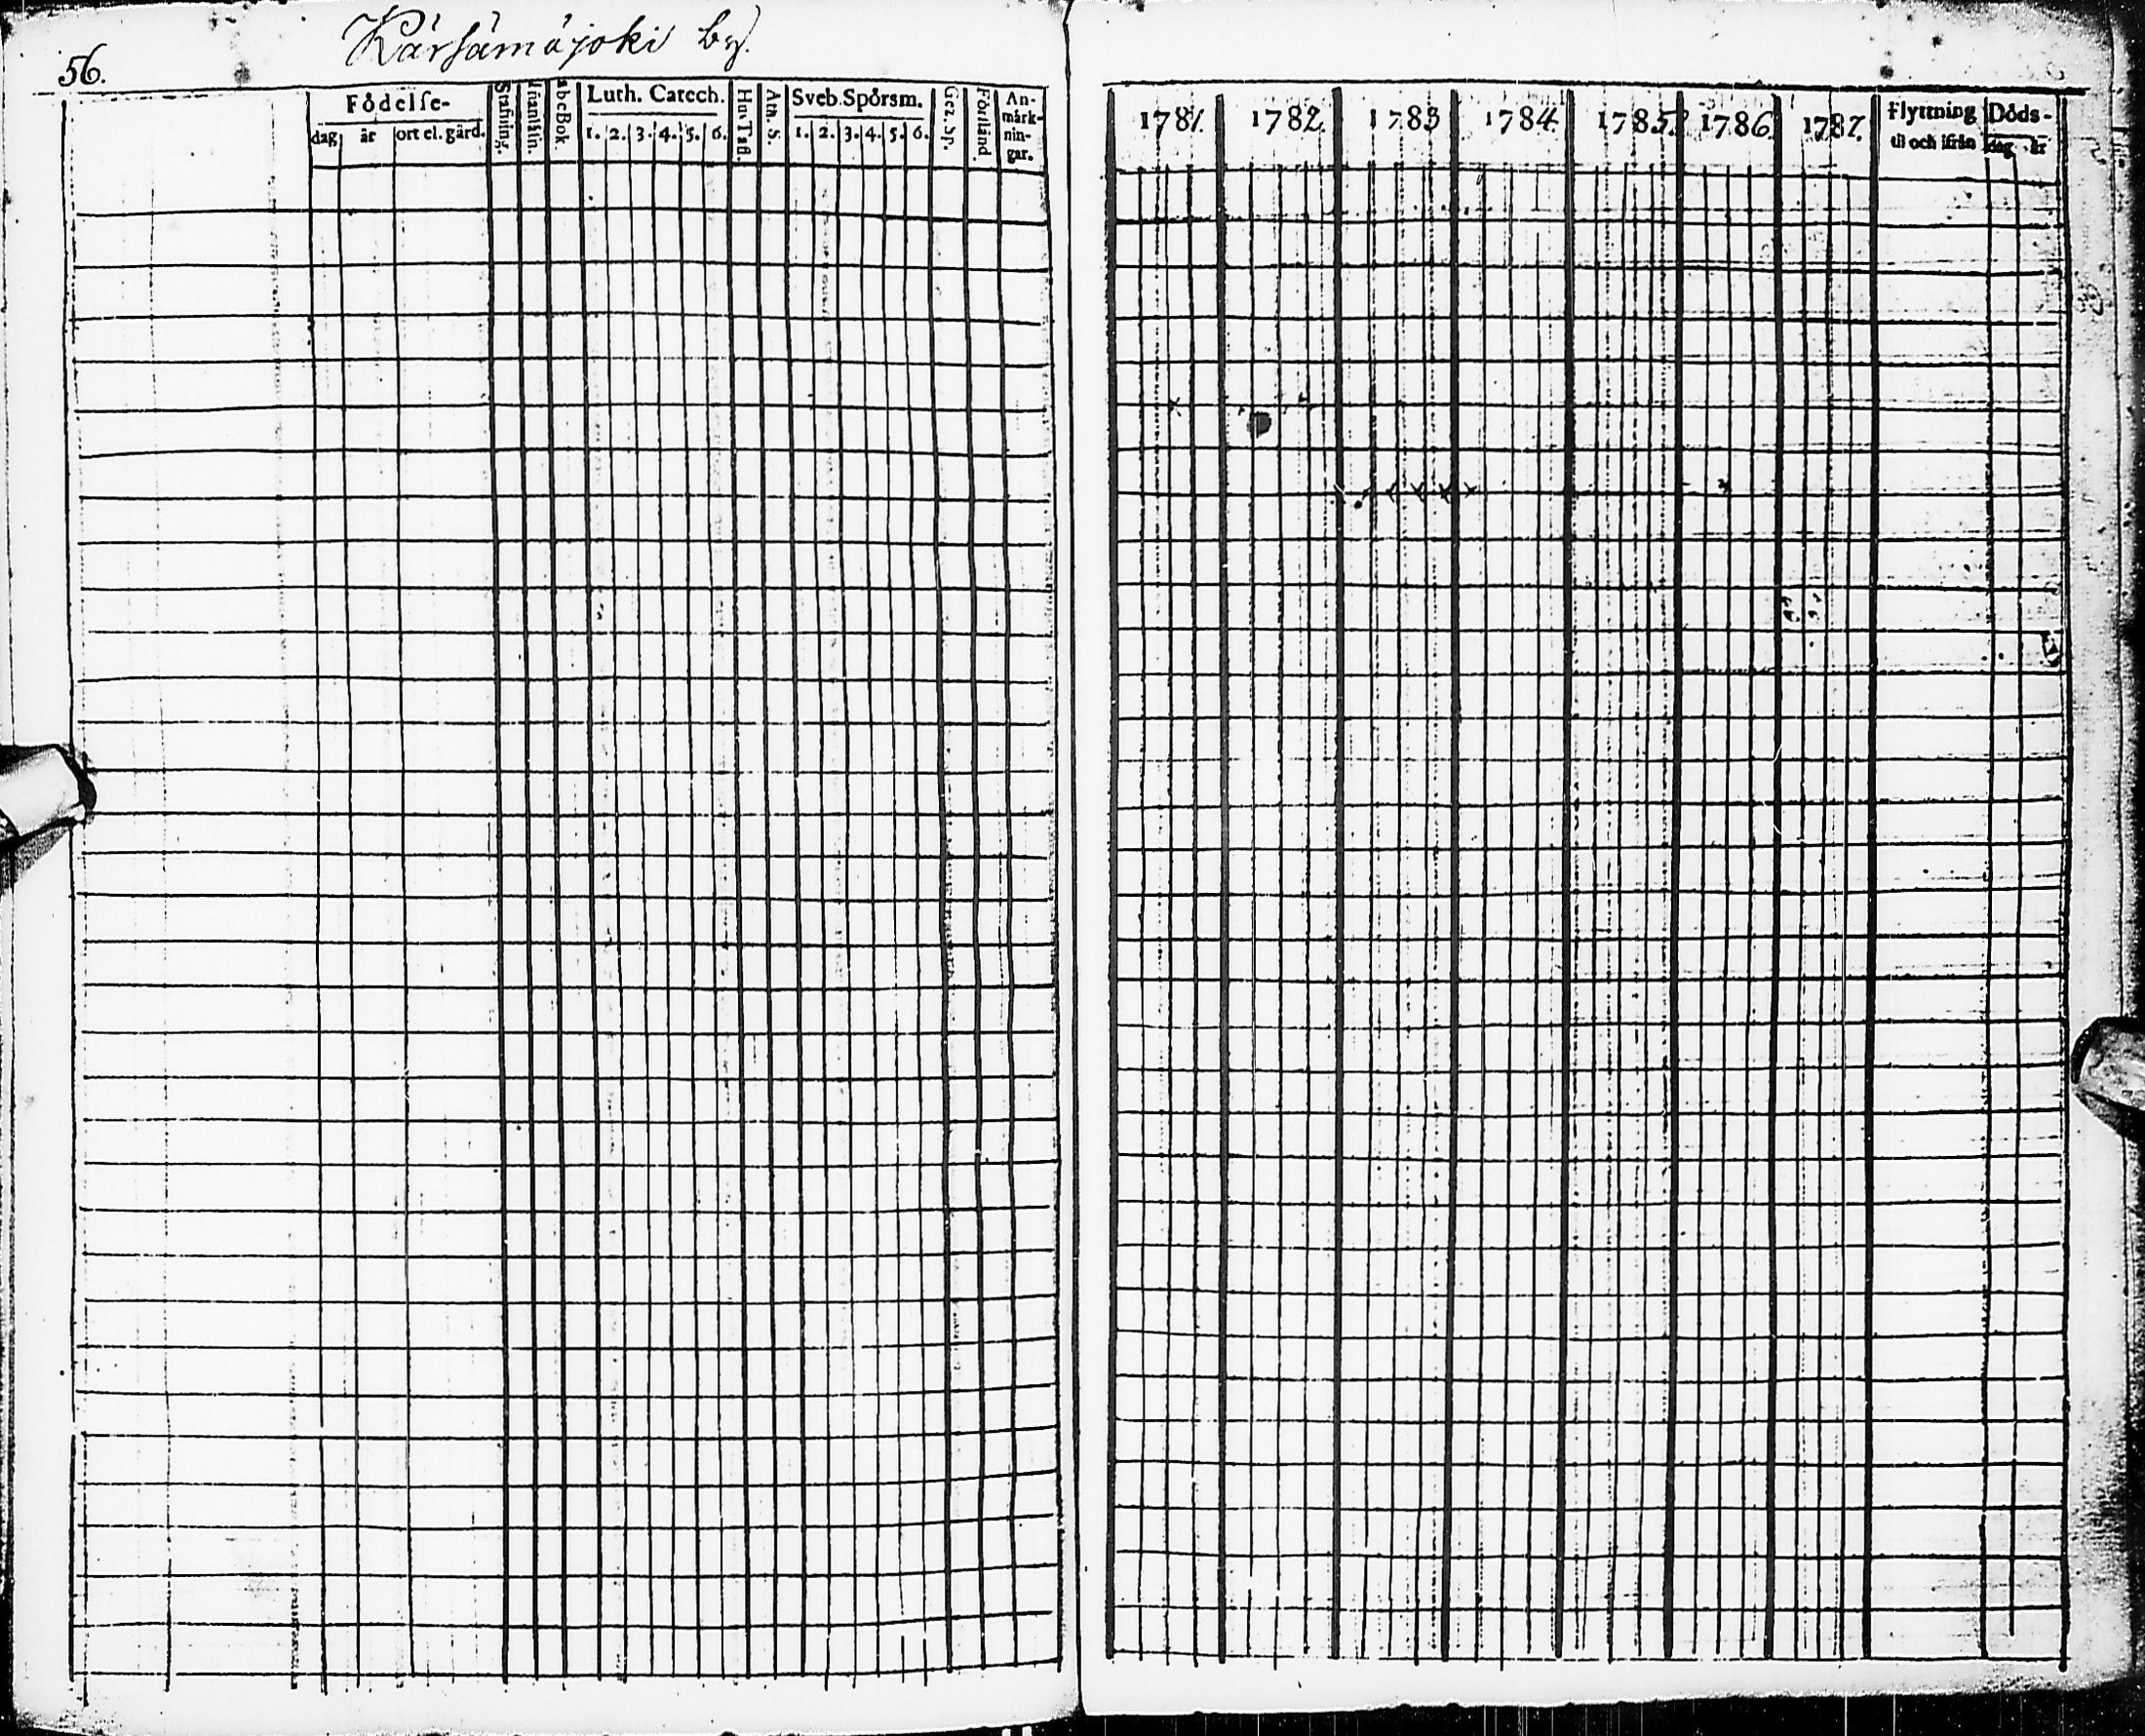 56.
Kärsämäjoki by.
Födelse-
dag år ort el. gård.
Stafning.
Luth. Catech.
1. 2. 3. 4. 5. 6.
Hus Tafl.
Ath. S.
Sveb. Spörsm.
1. 2. 3. 4. 5. 6.
Gez. Sp.
Förstånd.
An-
märk-
nin-
gar.
1781. 1782. 1783 1784. 1785. 1786. 1787.
Flyttning
til och ifrån
Döds-
dag år